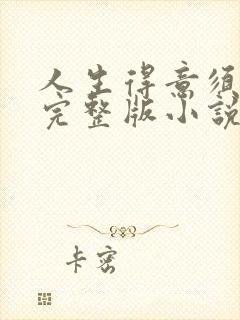 人生得意须
完整版小說
卡密